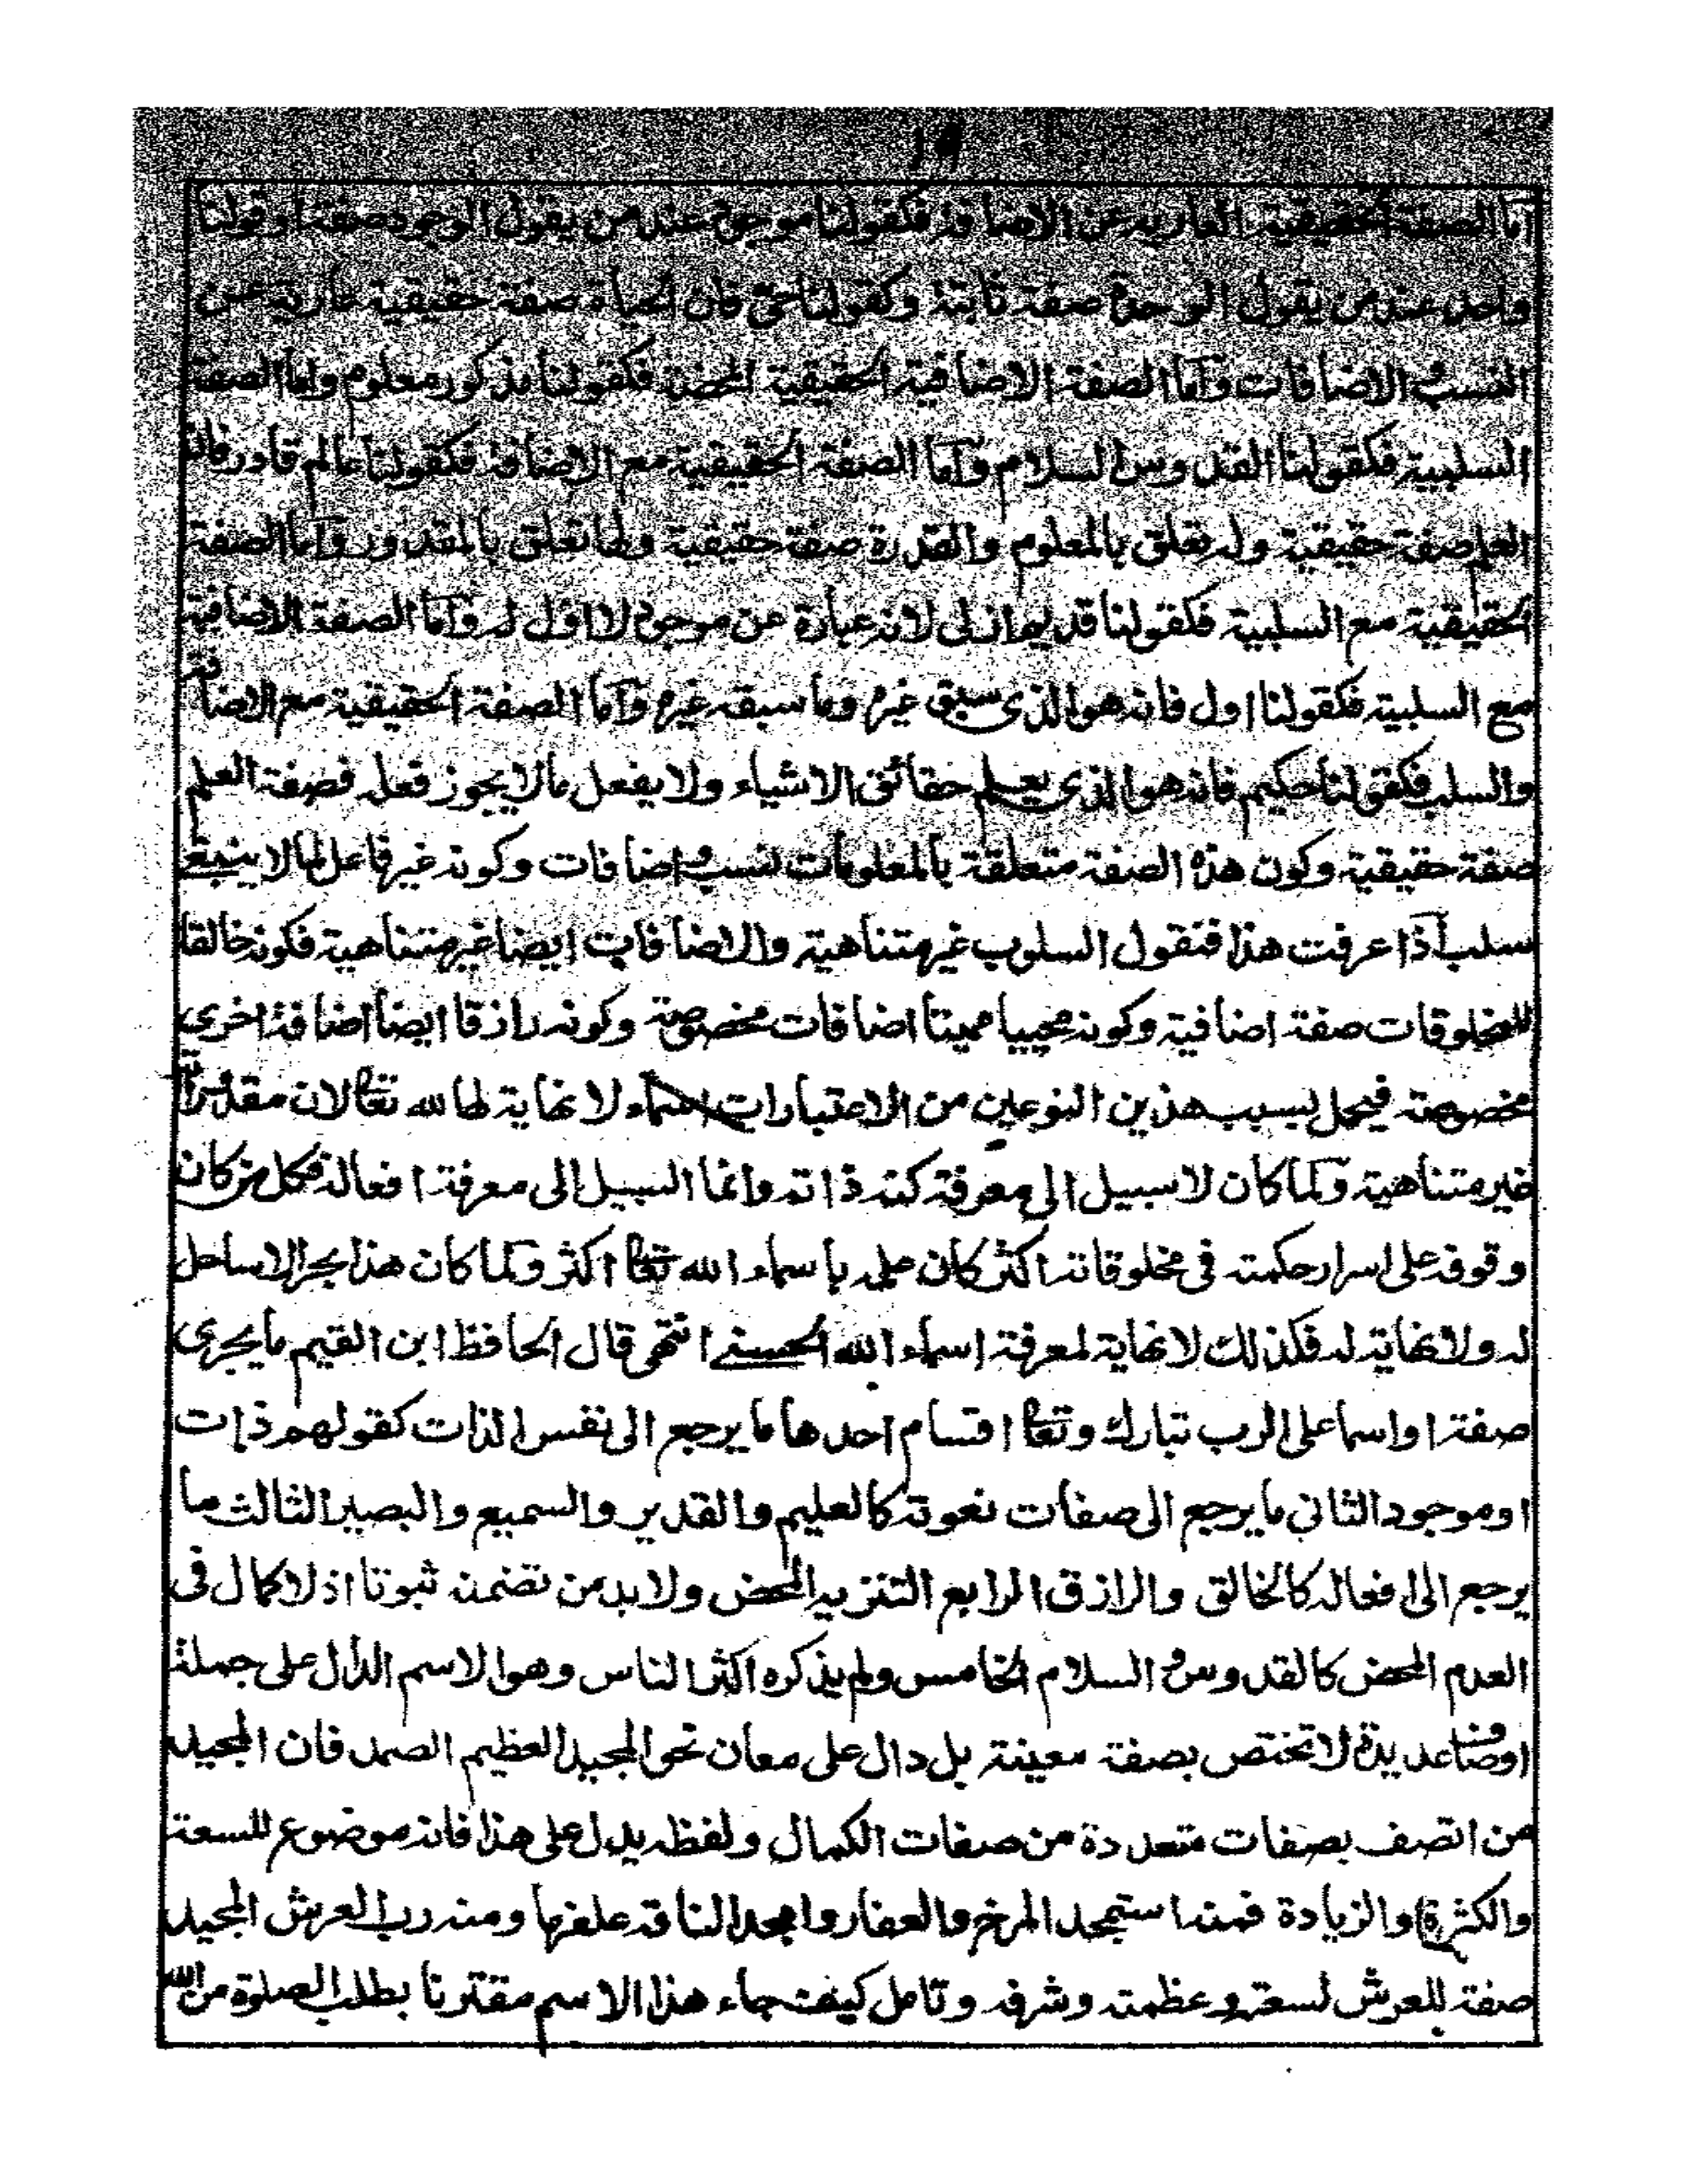 ١٩
اما الصفة الحقيقية العارية عن الاضافة فكقولنا موجود عند من يقول الوجود صفة او قولنا
واحد عند من يقول الوحدة صفة ثابتة وكقولنا حي فان الحياة صفة حقيقية عارية عن
النسب والاضافات واما الصفة الاضافية الحقيقية المحضة فكقولنا مذكور معلوم واما الصفة
السلبية فكقولنا القدوس السلام واما الصفة الحقيقية مع الاضافة فكقولنا عالم قادر فان
العلم صفة حقيقية وله تعلق بالمعلوم والقدرة صفة حقيقية ولها تعلق بالمقدور واما الصفة
الحقيقية مع السلبية فكقولنا قديم ازلى لانه عبارة عن موجود لا اول له واما الصفة الاضافية
مع السلبية فكقولنا اول فانه هو الذى سبق غيره وما سبقه غيره واما الصفة الحقيقية مع الاضافة
والسلب فكقولنا حكيم فانه هو الذى يعلم حقائق الاشياء ولا يفعل مالا يجوز فعله فصفة العلم
صفة حقيقية وكون هذه الصفة متعلقة بالمعلومات نسب واضافات وكونه غير فاعل لما لا ينبغى
سلب اذا عرفت هذا فنقول السلوب غير متناهية والاضافات ايضا غير متناهية فكونه خالقا
للمخلوقات صفة اضافية وكونه محييا مميتا اضافات مخصوصة وكونه رازقا ايضا اضافة اخرى
مخصوصة فيحصل بسبب هذين النوعين من الاعتبارات اسماء لا نهاية لها لله تعالى لان مقدوراته
غير متناهية ولما كان لا سبيل الى معرفة كنه ذاته وانما السبيل الى معرفة افعاله فكل من كان
وقوفه على اسرار حكمته فى مخلوقاته اكثر كان علمه باسماء الله تعالى اكثر ولما كان هذا بحر الا ساحل
له ولا نهاية له فكذلك لا نهاية لمعرفة اسماء الله الحسنى انتهى قال الحافظ ابن القيم ما يجرى
صفة او اسما على الرب تبارك وتعالى اقسام احدها ما يرجع الى نفس الذات كقولهم ذات
او موجود الثانى ما يرجع الى صفات نعوته كالعليم والقدير والسميع والبصير الثالث ما
يرجع الى افعاله كالخالق والرازق الرابع التنزيه المحض ولا بد من تضمنه ثبوتا اذ لا كمال فى
العدم المحض كالقدوس والسلام الخامس ولم يذكره اكثر الناس وهو الاسم الدال على جملة
اوصاف عديدة لا تختص بصفة معينة بل دال على معان نحو المجيد العظيم الصمد فان المجيد
من اتصف بصفات متعددة من صفات الكمال ولفظه يدل على هذا فانه موضوع للسعة
والكثرة والزيادة فمنه استمجد المرخ والعفار وامجد الناقة علفها ومنه رب العرش المجيد
صفة للعرش لسعته وعظمته وشرفه وتامل كيف جاء هذا الاسم مقترنا بطلب الصلوة من الله